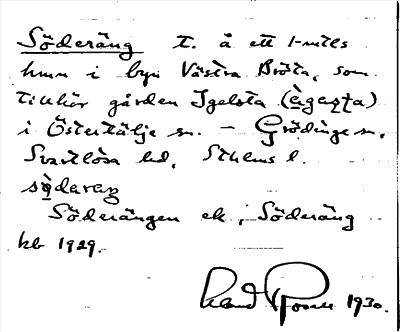 Söderäng t. å ett 1-mtls
hmn i byn Västra Brösta, som
tillhör gården Igelsta (ägagsta)
i Östertälje sn. – Grödinge sn,
Svartlösa hd, Sthlms l.
södaraŋ
Söderängen ek, Söderäng
kb 1929.
1930.